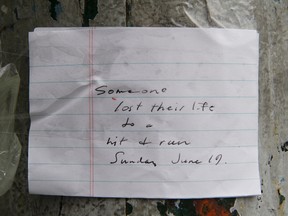 Someone
lost their life
to a
hit & run
Sunday June 19.